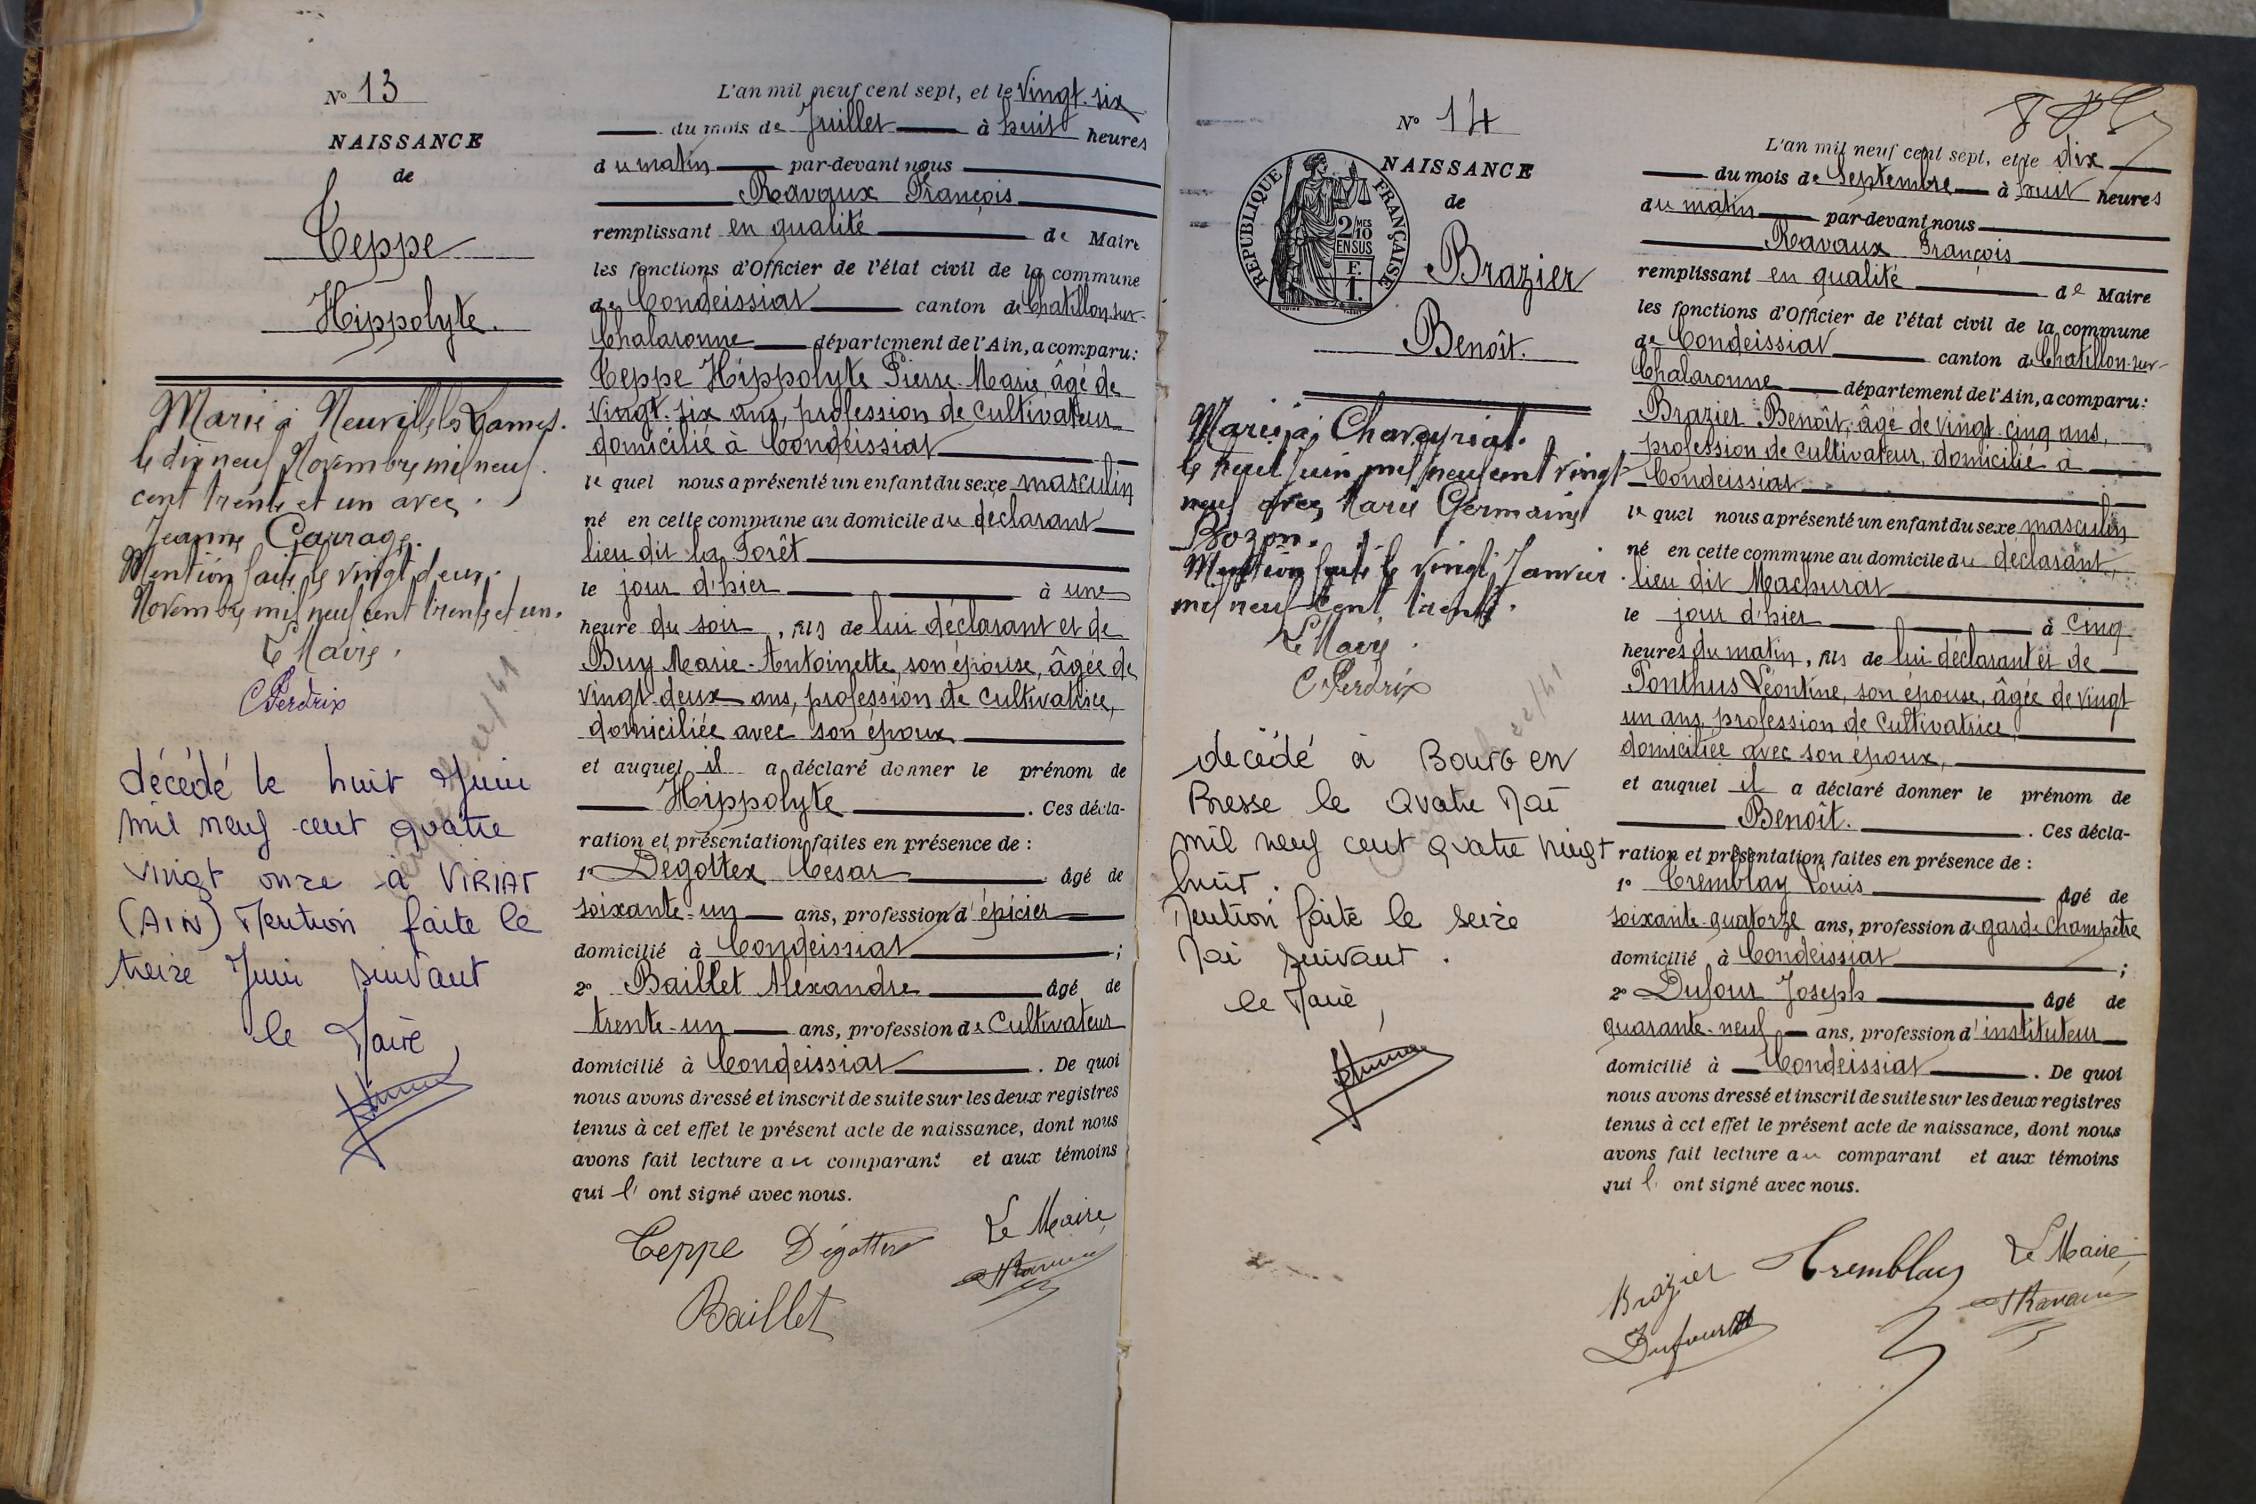 N° 13
NAISSANCE
de
Teppe
Hippolyte.
Marié à Neuville les Dames.
le dix neuf Novembre mil neuf.
cent trente et un avec.
Jeanne Garrage.
Mention faite le vingt deux.
Novembre mil neuf cent trente et un.
Le Maire.
C Perdrix
décédé le huit Juin
mil neuf cent quatre
vingt onze à VIRIAT
(AIN) Mention faite le
treize Juin suivant
le Maire,
L'an mil neuf cent sept, et le vingt-six
du mois de Juillet à huit heures
du matin par-devant nous
Ravaux François
remplissant en qualité de Maire
les fonctions d'Officier de l'état civil de la commune
de Condeissiat canton de Chatillon-sur-
Chalaronne département de l'Ain, a comparu:
Teppe Hippolyte Pierre-Marie, âgé de
vingt-six ans, profession de cultivateur
domicilié à Condeissiat
le quel nous a présenté un enfant du sexe masculin
né en cette commune au domicile du déclarant
lieu dit la Forêt
le jour d'hier à une
heure du soir, fils de lui déclarant et de
Buy Marie-Antoinette, son épouse, âgée de
vingt-deux ans, profession de cultivatrice,
domiciliée avec son époux
et auquel il a déclaré donner le prénom de
Hippolyte. Ces décla-
ration et présentation faites en présence de :
1° Dégottex César âgé de
soixante-un ans, profession d'épicier
domicilié à Condeissiat ;
2° Baillet Alexandre âgé de
trente-un ans, profession de cultivateur
domicilié à Condeissiat. De quoi
nous avons dressé et inscrit de suite sur les deux registres
tenus à cet effet le présent acte de naissance, dont nous
avons fait lecture au comparant et aux témoins
qui l' ont signé avec nous.
Teppe Dégottex Le Maire,
Baillet
N° 14
RÉPUBLIQUE FRANÇAISE
2/10 MES
EN SUS
F.
1.
NAISSANCE
de
Brazier
Benoît.
Marié à Chaveyriat.
le neuf Juin mil neuf cent vingt
neuf avec Marie Germaine
Bozon.
Mention faite le vingt Janvier.
mil neuf cent trente.
Le Maire.
C Perdrix
decédé à Bourg en
Bresse le Quatre Mai
mil neuf cent quatre vingt
huit.
Mention faite le seize
Mai suivant.
le Maire,
L'an mil neuf cent sept, et le dix
du mois de Septembre à huit heures
du matin par-devant nous
Ravaux François
remplissant en qualité de Maire
les fonctions d'Officier de l'état civil de la commune
de Condeissiat canton de Chatillon-sur-
Chalaronne département de l'Ain, a comparu:
Brazier Benoît, âgé de vingt-cinq ans,
profession de cultivateur, domicilié à
Condeissiat
le quel nous a présenté un enfant du sexe masculin
né en cette commune au domicile du déclarant,
lieu dit Machurat
le jour d'hier à cinq
heures du matin, fils de lui déclarant et de
Ponthus Léontine, son épouse, âgée de vingt
un ans, profession de cultivatrice,
domiciliée avec son époux,
et auquel il a déclaré donner le prénom de
Benoît. Ces décla-
ration et présentation faites en présence de :
1° Tremblay Louis âgé de
soixante-quatorze ans, profession de garde champêtre
domicilié à Condeissiat ;
2° Dufour Joseph âgé de
quarante-neuf ans, profession d'instituteur
domicilié à Condeissiat. De quoi
nous avons dressé et inscrit de suite sur les deux registres
tenus à cet effet le présent acte de naissance, dont nous
avons fait lecture au comparant et aux témoins
qui l' ont signé avec nous.
Brazier Tremblay Le Maire,
Dufour FRavaux